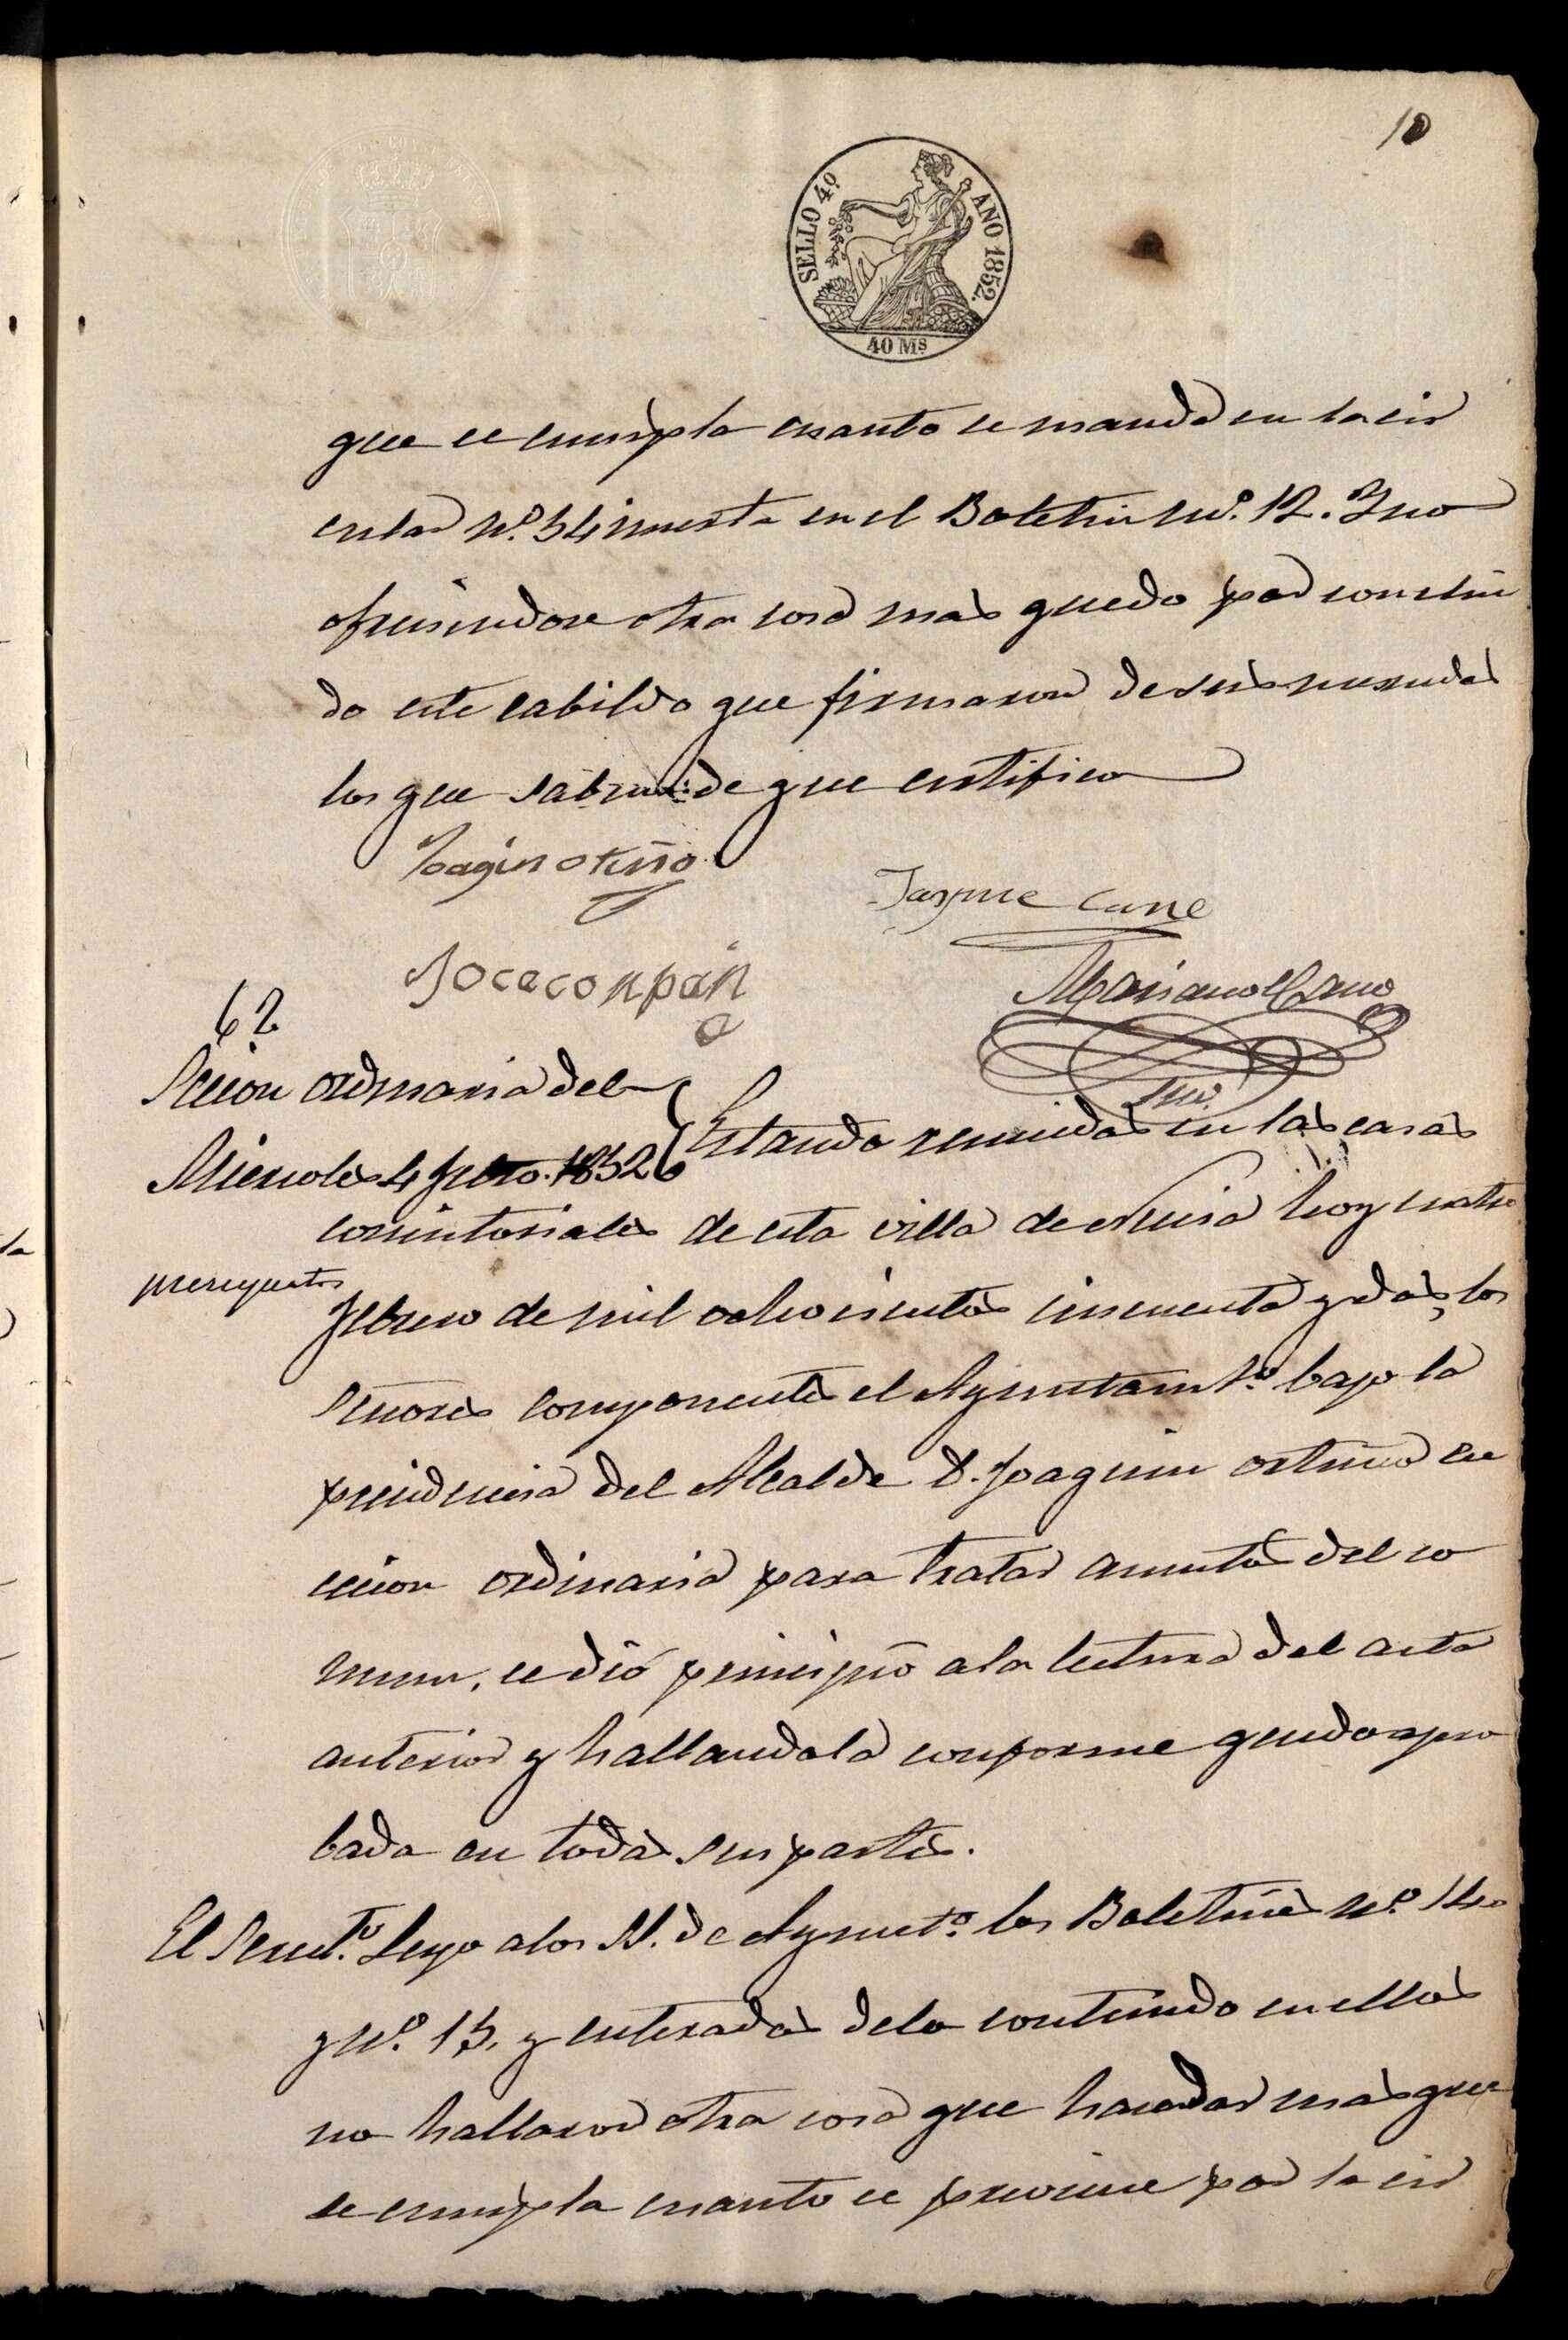 10
SELLO 4º. AÑO 1852.
40 Ms
que se cumpla cuanto se manda en la cir
cular nº. 54 inserta en el Boletin nº. 12. Y no
ofreciendose otra cosa mas quedo por conclui
do este cabildo que firmaron de sus mercedes
los que saben: de que certifico
Joaqin otuño
Jayme Cane
Jocecompañ
Mariano Cano
Srio.
6ª
Secion ordinaria del
Miercoles 4 Febro. 1852
Estando reunidos en las casas
consistoriales de esta villa de Nucia hoy cuatro
presupuetos
Febrero de mil ochocientos cincuenta y dos, los
Señores componentes el Ayuntamto. bajo la
presidencia del Alcalde D. Joaquin ortuño en
secion ordinaria para tratar asuntos del co
mun, se dió principio a la lectura del acta
anterior y hallandola conforme quedo apro
bada en todas sus partes.
El Secreto. Leyo a los SS. de Ayunto. los Boletines nº. 14
y nº. 15, y enterados de lo contenido en ellos
no hallaron otra cosa que hacordar mas que
se cumpla cuanto se previene por la cir